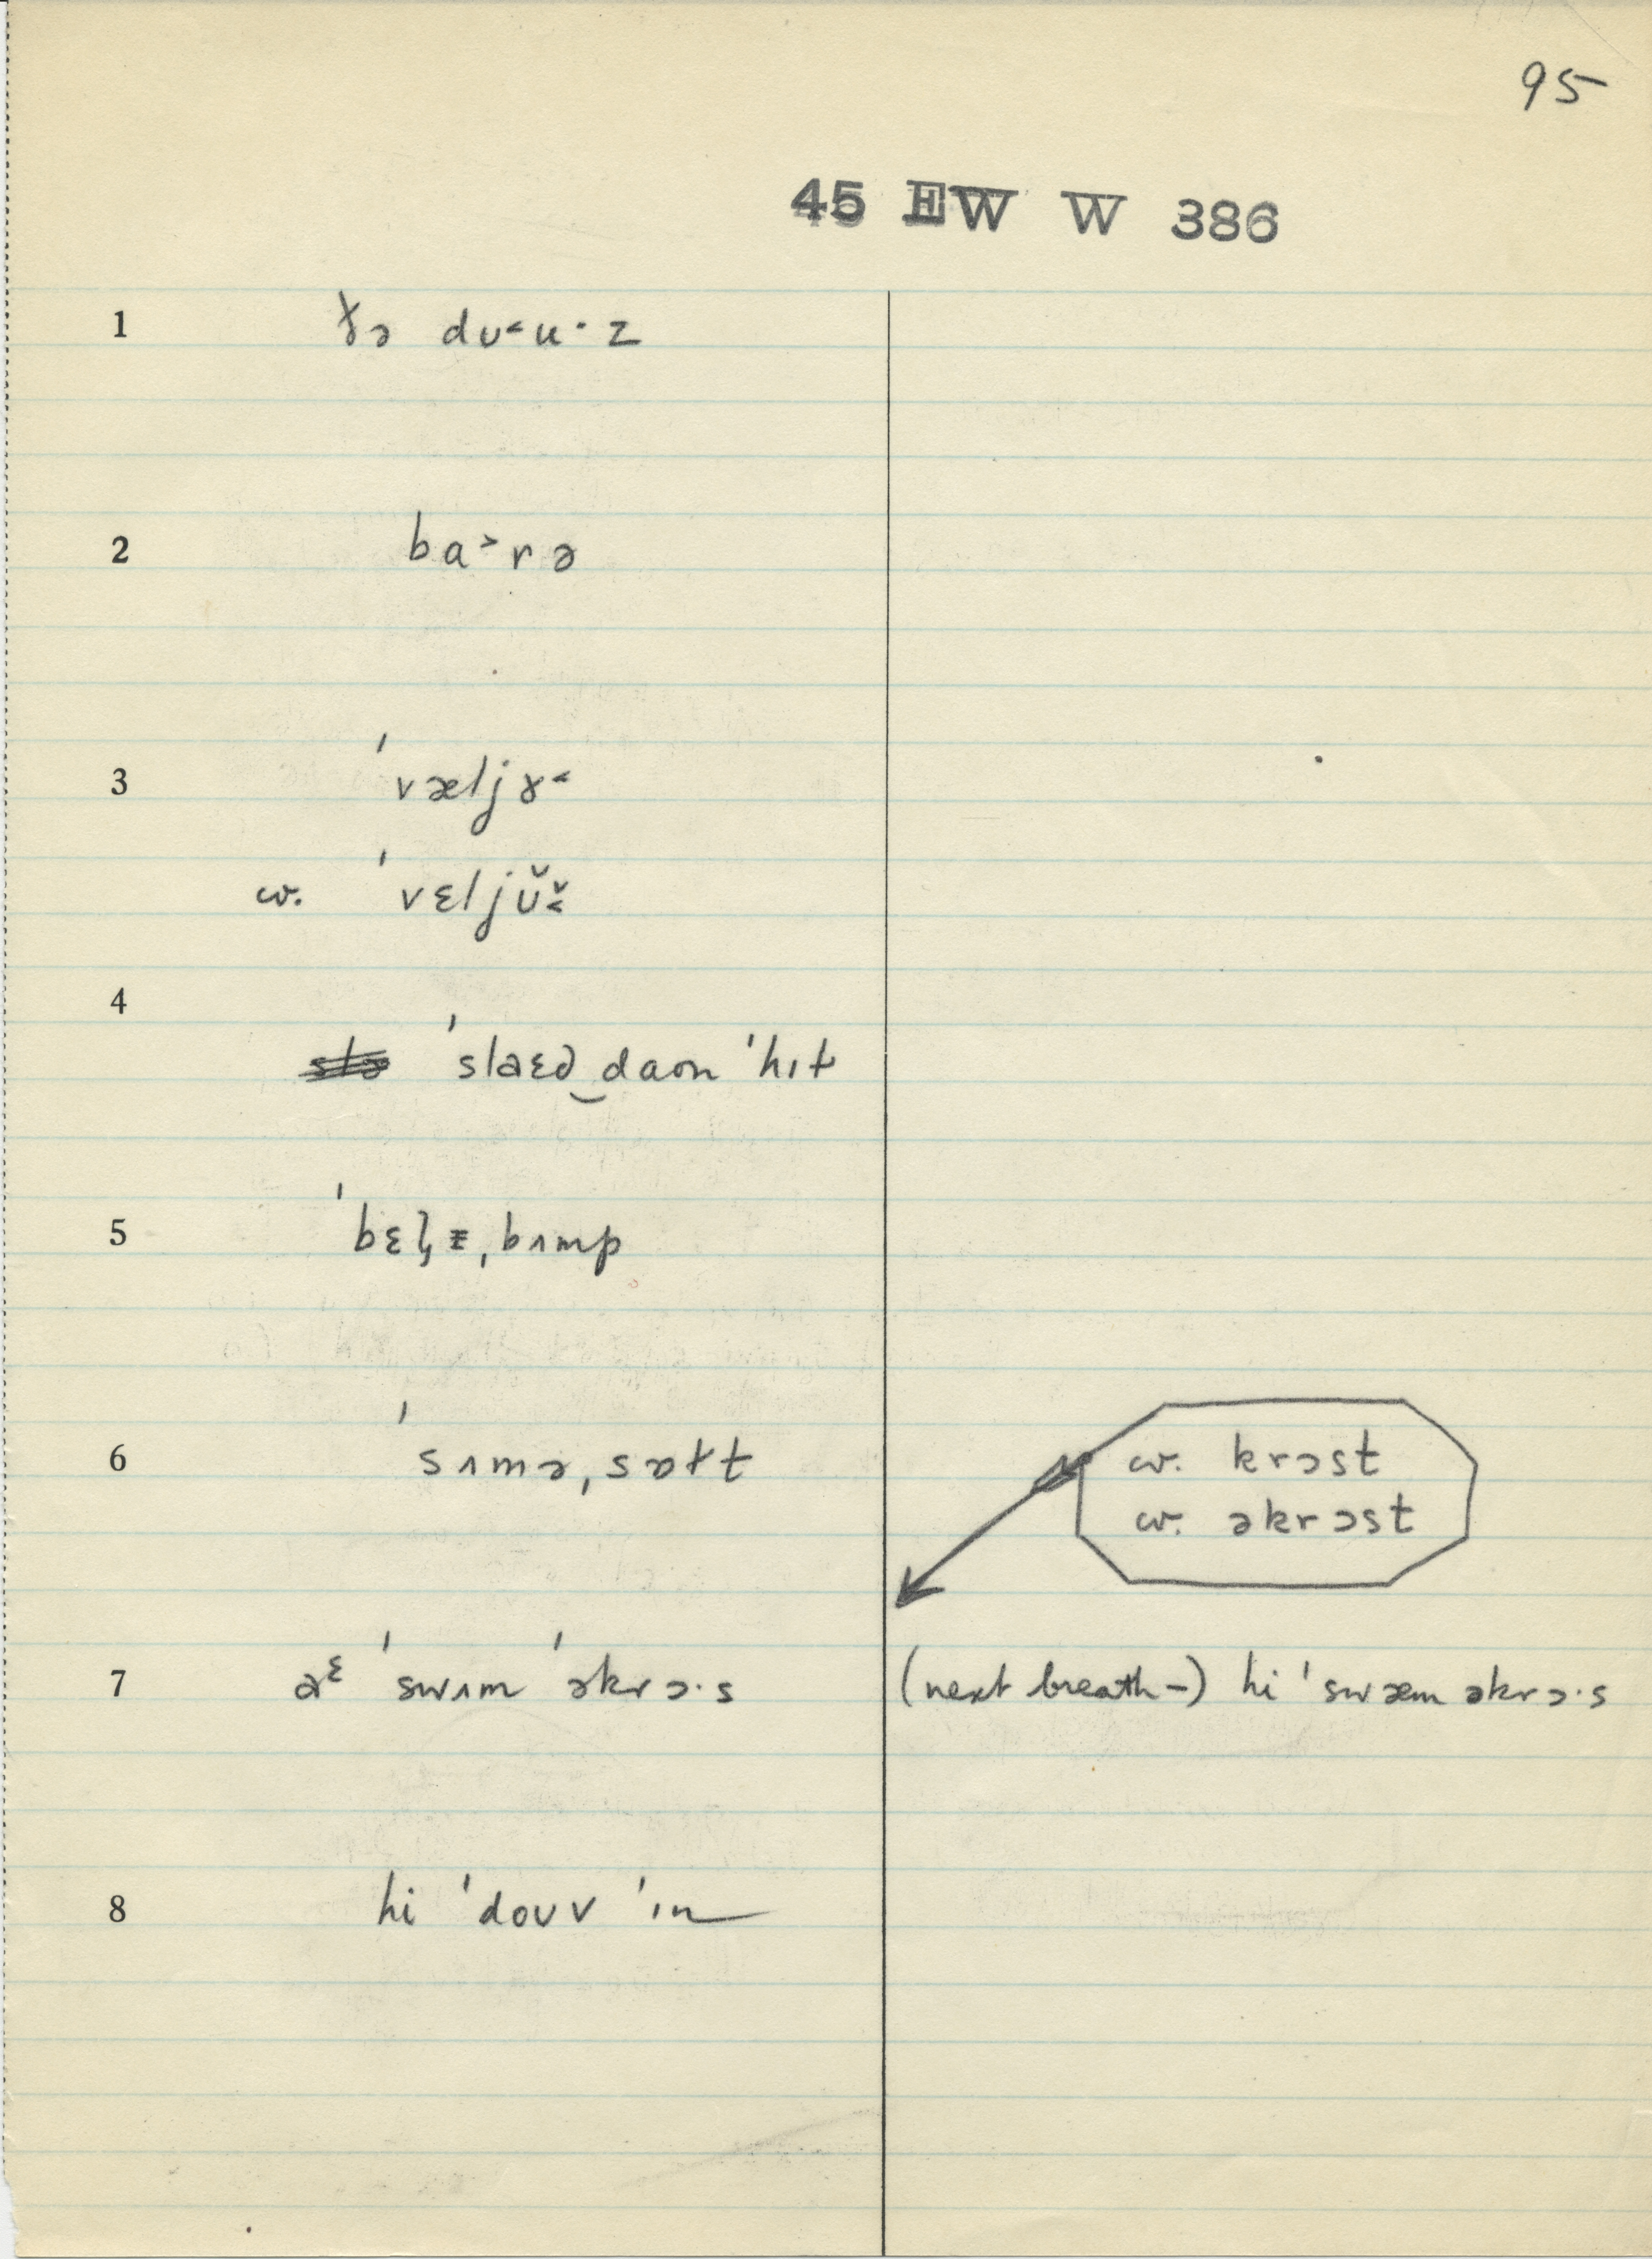 95
45 EW W 386
1 ɤə dʊ˂u·z
2 ba˃rə
3 ˈvæljɤ˂
w. ˈvɛljʊ̆˂̆
4
ˈslaɛd‿daʊn ˈhɪt
5 ˌbʌmp
6 ˈsʌmə,sɒɫt
w. krɔst
w. əkrɔst
7 aᵋ ˈswʌm ˈəkrɔ·s (next breath–) hi ˈswæm əkrɔ·s
8 hi ˈdoʊv ˈɪn